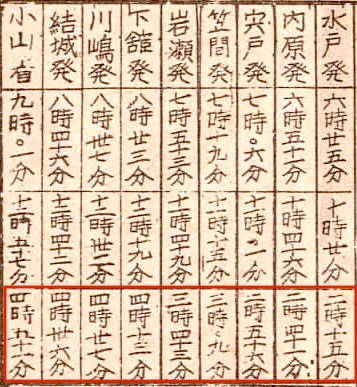 水戸発 六時廿五分 十時廿分 二時十五分
内原発 六時五十一分 十時四十六分 二時四十一分
宍戸発 七時〇六分 十時〇一分 二時五十六分
笠間発 七時十九分 十一時十五分 三時〇九分
岩瀬発 七時五十三分 十一時四十九分 三時四十三分
下舘発 八時廿三分 十二時十九分 四時十三分
川嶋発 八時卅七分 十二時卅二分 四時廿七分
結城発 八時四十六分 十二時四十二分 四時卅六分
小山着 九時〇一分 十二時五十七分 四時五十一分